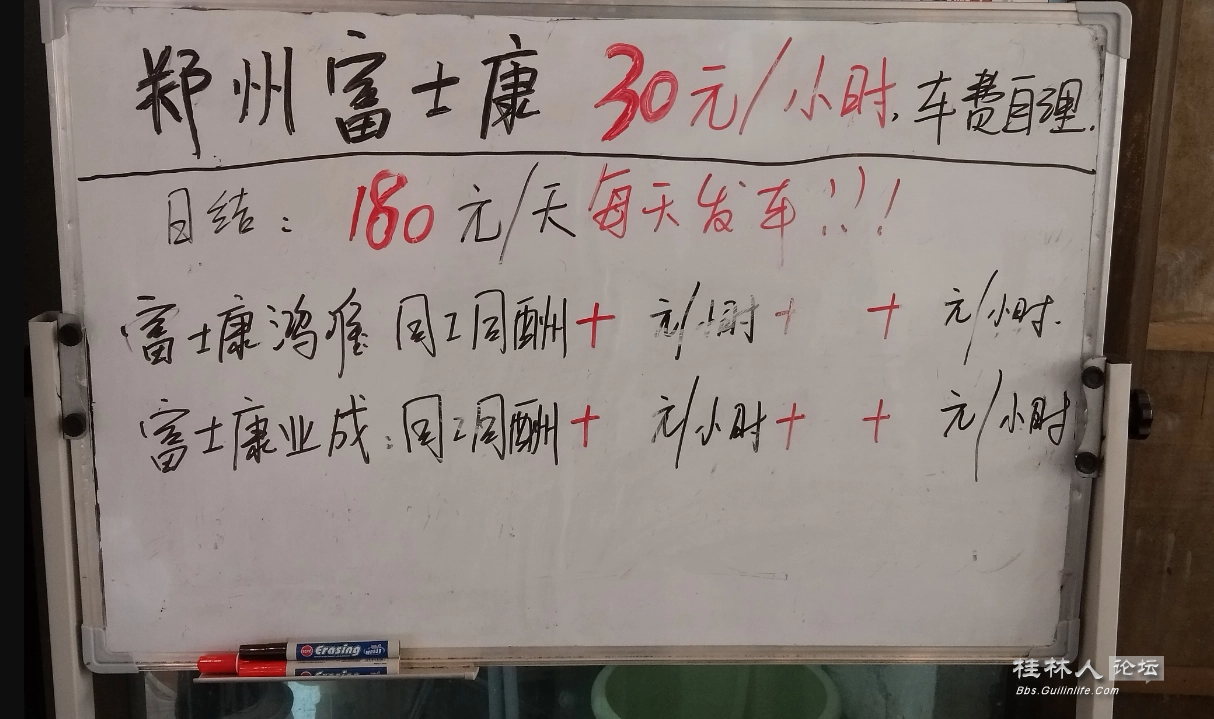 郑州富士康 30元/小时.车费自理.
日结: 180元/天每天发车!!!
富士康鸿准 同工同酬+ 元/小时+ + 元/小时.
富士康业成:同工同酬+ 元/小时+ + 元/小时
Erasing
Erasing
桂林人论坛
Bbs.Guilinlife.Com